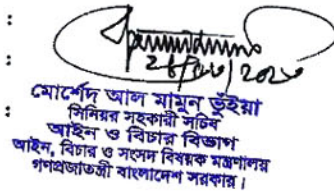 :
:
:
মোর্শেদ আল মামুন ভুঁইয়া
সিনিয়র সহকারী সচিব
আইন ও বিচার বিভাগ
আইন, বিচার ও সংসদ বিষয়ক মন্ত্রণালয়
গণপ্রজাতন্ত্রী বাংলাদেশ সরকার।